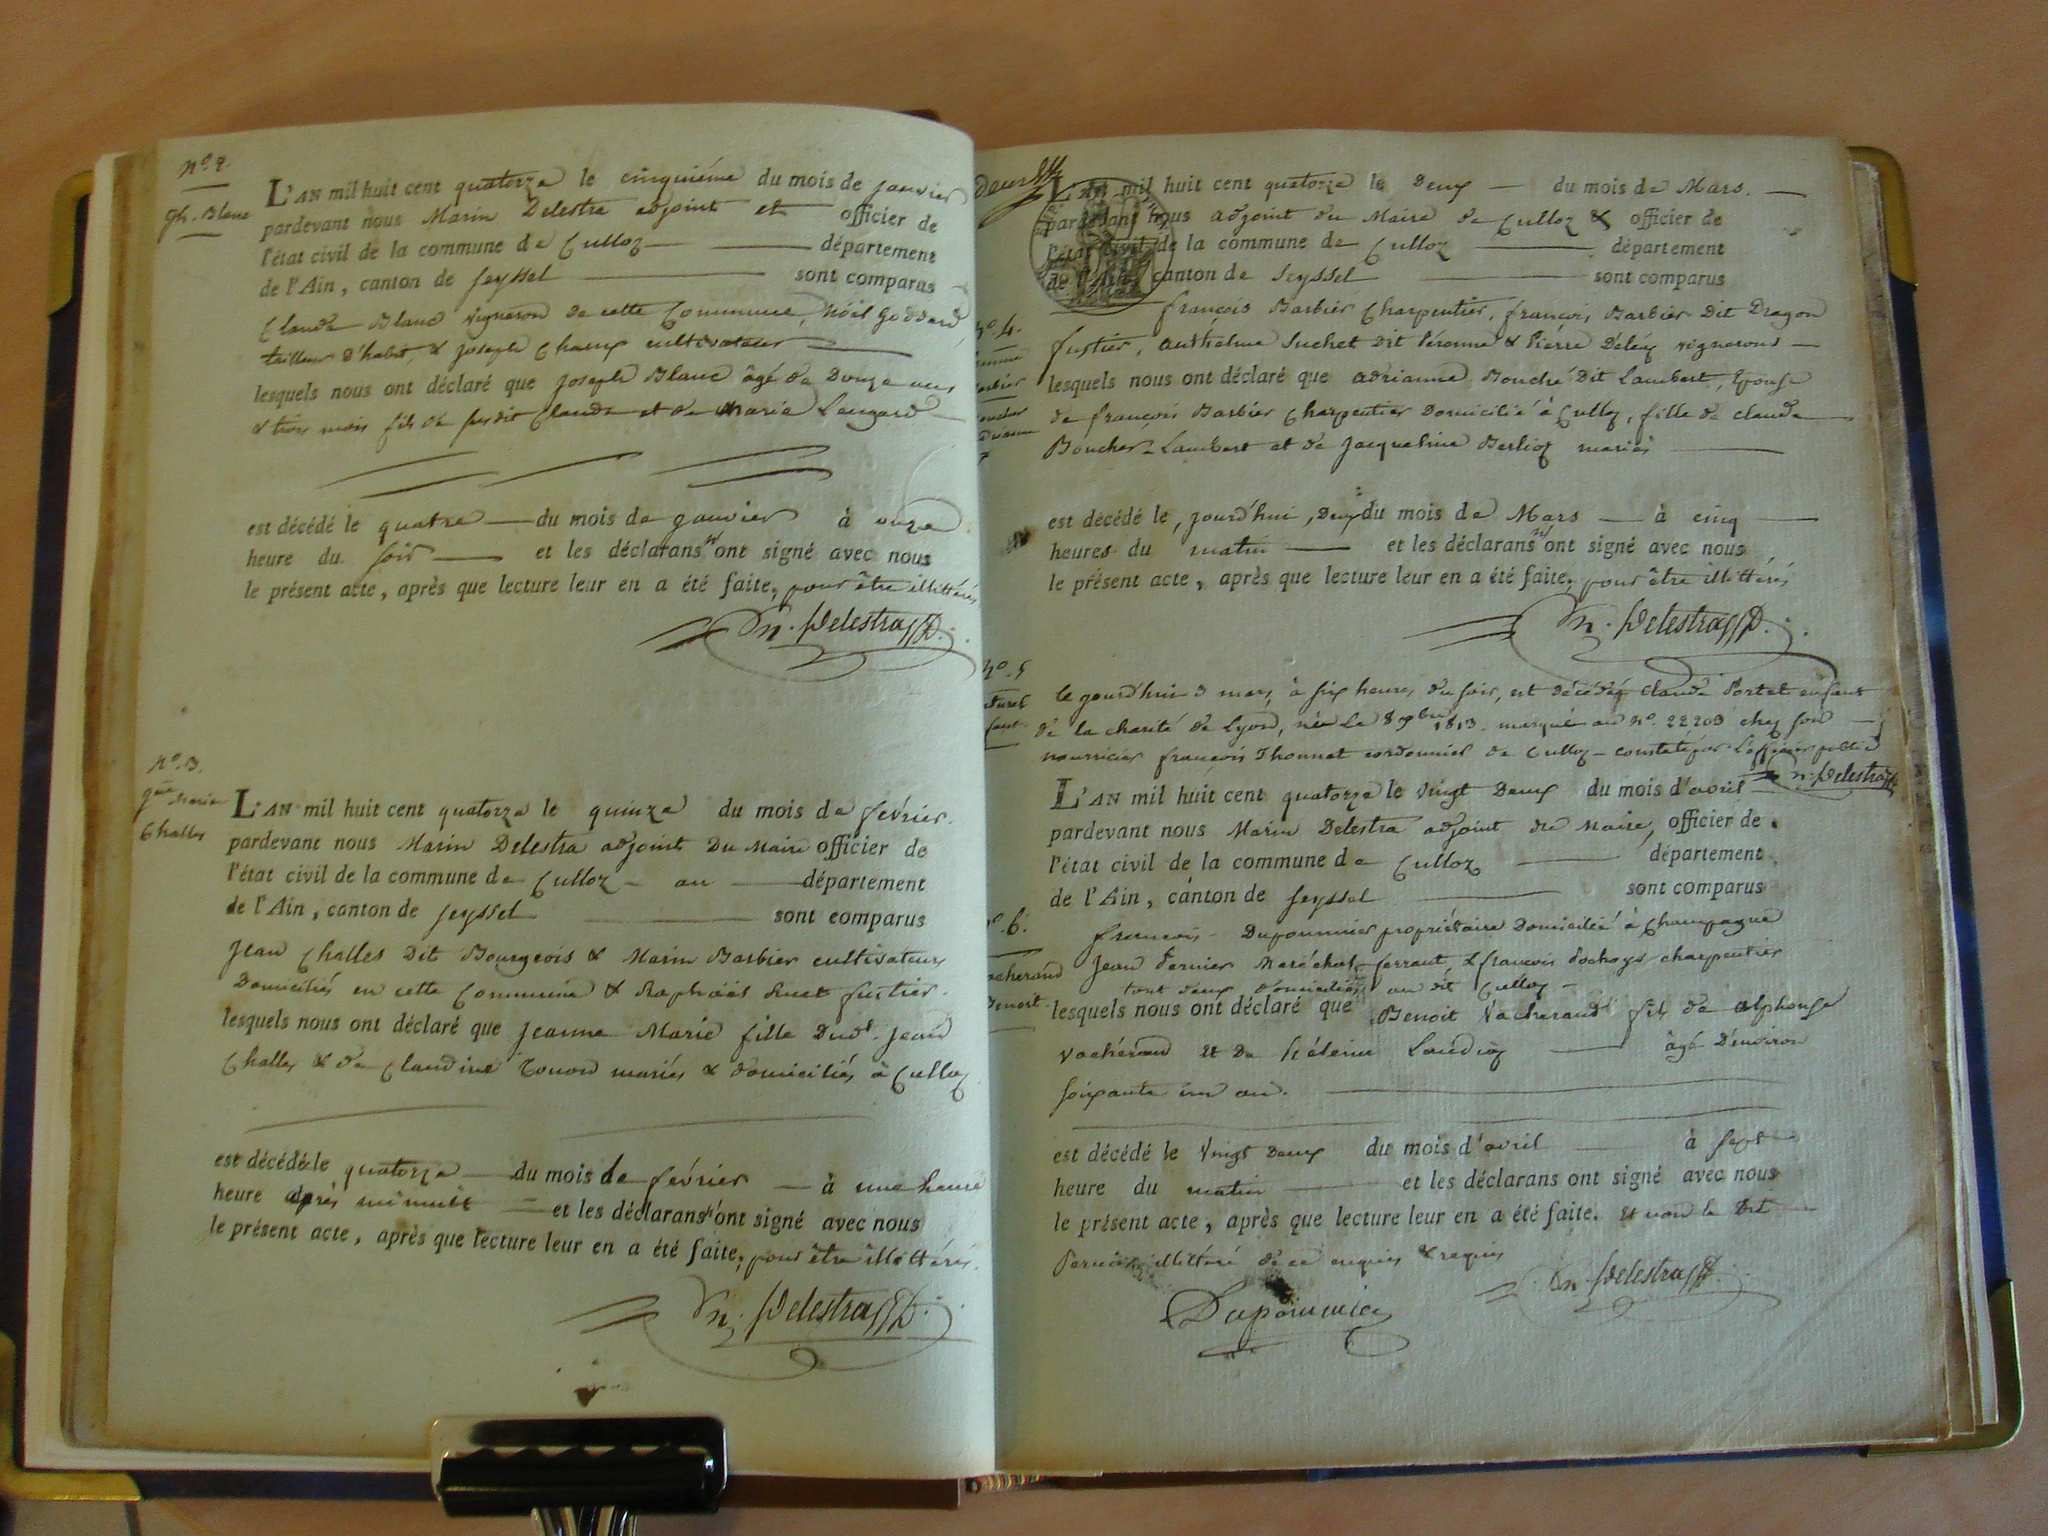 N.º 2.
Jh. Blanc
L'AN mil huit cent quatorze le cinquième du mois de janvier
pardevant nous Marin Delestra adjoint et officier de
l'état civil de la commune de Culloz département
de l'Ain, canton de Seyssel sont comparus
Claude Blanc vigneron de cette Commune, Nöel Goddard
tailleur D'habit, & Joseph Chaux cultivateur
lesquels nous ont déclaré que Joseph Blanc âgé de Douze ans
& trois mois fils de susdit Claude et de Maria Longard
est décédé le quatre du mois de janvier à onze
heure du soir et les déclarans n'ont signé avec nous
le présent acte, après que lecture leur en a été faite, pour être illittérés
Mn. Delestra
N.º 3.
Jne Maria
Challes
L'AN mil huit cent quatorze le quinze du mois de février.
pardevant nous Marin Delestra adjoint Du Maire officier de
l'état civil de la commune de Culloz au département
de l'Ain, canton de Seyssel sont comparus
Jean Challes Dit Bourgeois & Marin Barbier cultivateurs
Domiciliés en cette Commune & Raphaël fustier.
lesquels nous ont déclaré que Jeanne Marie fille Dud.t Jean
Challes & de Claudine Touon mariés & domiciliés à Culloz
est décédé le quatorze du mois de février à une heure
heure après minuit et les déclarans n'ont signé avec nous
le présent acte, après que lecture leur en a été faite, pour être illittérés.
Mn. Delestra
Deux
L'AN mil huit cent quatorze le Deux du mois de Mars.
pardevant nous adjoint du Maire de Culloz & officier de
l'état civil de la commune de Culloz département
de l'Ain, canton de Seyssel sont comparus
N.º 4.
françois Barbier Charpentier, françois Barbier Dit Dragon
fustier, anthelme Suchet Dit Péronne & Pierre Déléaz vignerons
lesquels nous ont déclaré que adrianne Bouché Dit Lambert, Epouse
de françois Barbier Charpentier Domicilié à Culloz, fille de claude
Boucher Lambert et de Jacqueline Berlioz mariés
est décédé le jourd'hui, Deux du mois de Mars à cinq
heures du matin et les déclarans n'ont signé avec nous
le présent acte, après que lecture leur en a été faite, pour être illittérés
Mn. Delestra
N.º 5
le jourd'hui 3 mars, à six heures du soir, est décédé Claude Portet enfant
de la charité de Lyon, née Le 8 1813. marqué au N.º 22203 chez son
nourricier françois Thonnet cordonnier de Culloz - constaté par L'officier public
Mn. Delestra
L'AN mil huit cent quatorze le vingt Deux du mois d'avril
pardevant nous Marin Delestra adjoint du Maire, officier de
l'état civil de la commune de Culloz département
de l'Ain, canton de Seyssel sont comparus
N.º 6.
françois Dupommier propriétaire Domicilié à Champagne
Vacherand
Jean Pernier Maréchal ferrant, & françois charpentier
Benoit
tout deux domiciliés au dit Culloz
lesquels nous ont déclaré que Benoit Vacherand fils de alphonse
vachérand et De héleine âgé D'environ
soixante un an.
est décédé le vingt Deux du mois d'avril à sept
heure du matin et les déclarans ont signé avec nous
le présent acte, après que lecture leur en a été faite. Et non le Dit
Pernier illittéré de ce enquis & requis
Mn. Delestra
Dupommier